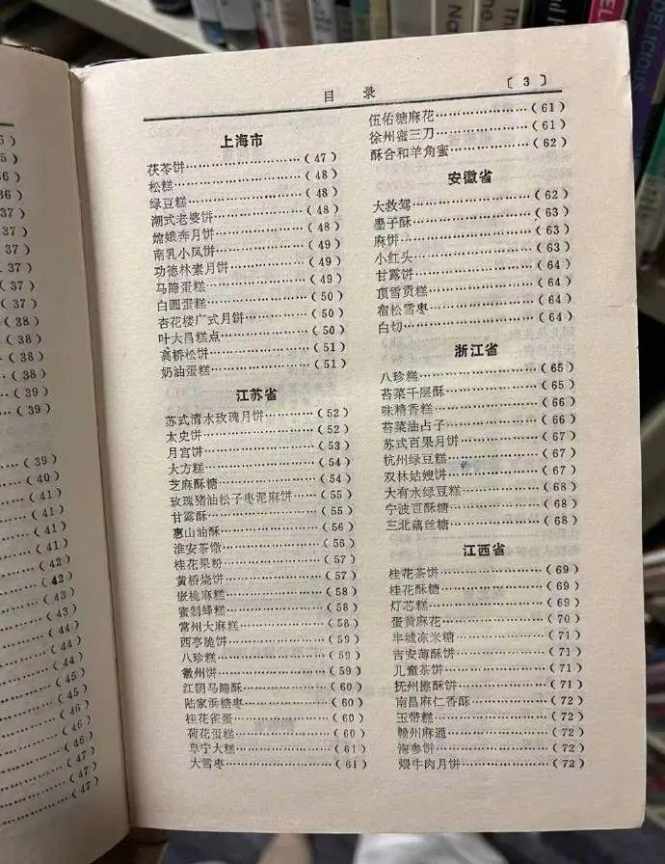 目 录
〔 3 〕
上海市
茯苓饼……(47)
松糕……(48)
绿豆糕……(48)
潮式老婆饼……(48)
嫦娥奔月饼……(48)
南乳小凤饼……(49)
功德林素月饼……(49)
马蹄蛋糕……(49)
白圆蛋糕……(50)
杏花楼广式月饼……(50)
叶大昌糕点……(50)
高桥松饼……(51)
奶油蛋糕……(51)
江苏省
苏式清水玫瑰月饼……(52)
太史饼……(52)
月宫饼……(53)
大方糕……(54)
芝麻酥糖……(54)
玫瑰猪油松子枣泥麻饼……(55)
甘露酥……(55)
惠山油酥……(56)
淮安茶馓……(56)
桂花果粉……(57)
黄桥烧饼……(57)
嵌桃麻糕……(58)
蜜制蜂糕……(58)
常州大麻糕……(58)
西亭脆饼……(59)
八珍糕……(59)
徽州饼……(59)
江阴马蹄酥……(60)
陆家浜糖枣……(60)
桂花雀蛋……(60)
荷花蛋糕……(60)
阜宁大糕……(61)
大雪枣……(61)
伍佑糖麻花……(61)
徐州蜜三刀……(61)
酥合和羊角蜜……(62)
安徽省
大救驾……(62)
墨子酥……(63)
麻饼……(63)
小红头……(63)
甘露饼……(64)
顶雪贡糕……(64)
宿松雪枣……(64)
白切……(64)
浙江省
八珍糕……(65)
苔菜千层酥……(65)
味精香糕……(66)
苔菜油占子……(66)
苏式百果月饼……(67)
杭州绿豆糕……(67)
双林姑嫂饼……(67)
大有水绿豆糕……(68)
宁波豆酥糖……(68)
三北藕丝糖……(68)
江西省
桂花茶饼……(69)
桂花酥糖……(69)
灯芯糕……(69)
蛋黄麻花……(70)
丰城冻米糖……(71)
吉安薄酥饼……(71)
儿童茶饼……(71)
抚州擦酥饼……(71)
南昌麻仁香酥……(72)
玉带糕……(72)
赣州麻通……(72)
海参饼……(72)
煨牛肉月饼……(72)